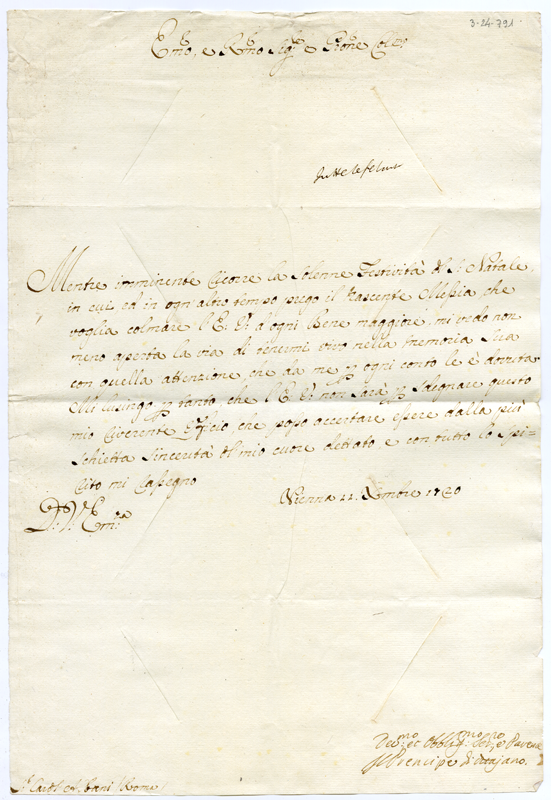 3-24-791
Emo, e Rmo Sigr e Prone Colmo
Mentre imminente ricorre la solenne Festività del S. Natale,
in cui, ed in ogni altro tempo prego il nascente Messia, che
voglia colmare l'E. V. d'ogni Bene maggiore, mi vedo non
meno aperta la via di tenermi vivo nella memoria Sua
con quella attenzione, che da me p ogni conto le è dovuta.
Mi lusingo p tanto che l'E. V. non sarà p sdegnare questo
mio riverente Officio, che posso accertare essere dalla più
schietta sincerità del mio cuore dettato, e con tutto lo Spi=
rito mi rassegno
Vienna 22 Xmbre 1720
D. V. Emza
Devmo et Obbligmo Servre
Il Principe d'Ottajano.
Sr Cardl Albani Roma